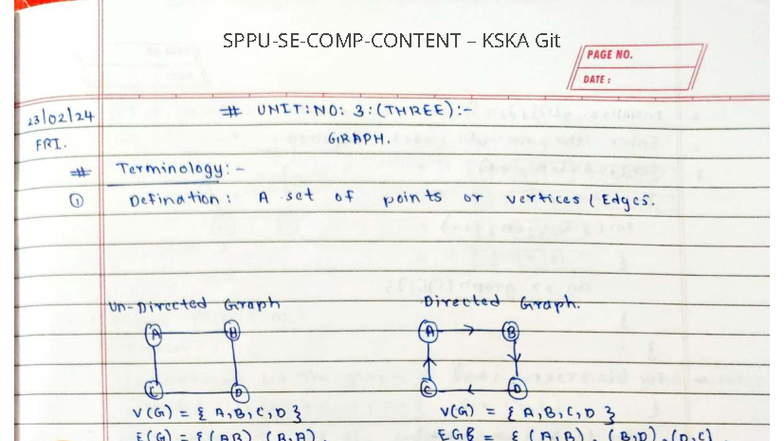 SPPU-SE-COMP-CONTENT – KSKA Git
PAGE NO.
DATE :
23/02/24
# UNIT: NO: 3: (THREE) :-
FRI.
GRAPH.
# Terminology: -
① Defination : A set of points or vertices / Edges.
Un-Directed Graph
Directed Graph.
A B
A B
C D
C D
V(G) = { A, B, C, D }
V(G) = { A, B, C, D }
E(G) = { (AB), (B,A),
EGB = { (A,B), (B,D), (D,C)